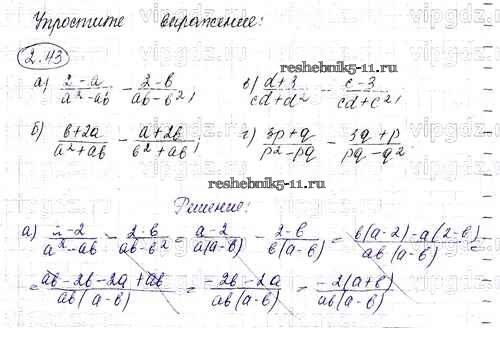 Упростите выражение:
2.43
а) (2-a)/(a²-ab) - (2-b)/(ab-b²), в) (d+3)/(cd+d²) - (c-3)/(cd+c²),
reshebnik5-11.ru
б) (b+2a)/(a²+ab) - (a+2b)/(b²+ab), г) (3p+q)/(p²-pq) - (3q+p)/(pq-q²).
reshebnik5-11.ru
Решение:
а) (a-2)/(a²-ab) - (2-b)/(ab-b²) = (a-2)/(a(a-b)) - (2-b)/(b(a-b)) = (b(a-2)-a(2-b))/(ab(a-b)) =
= (ab-2b-2a+ab)/(ab(a-b)) = (-2b-2a)/(ab(a-b)) = (-2(a+b))/(ab(a-b))
vipgdz.com